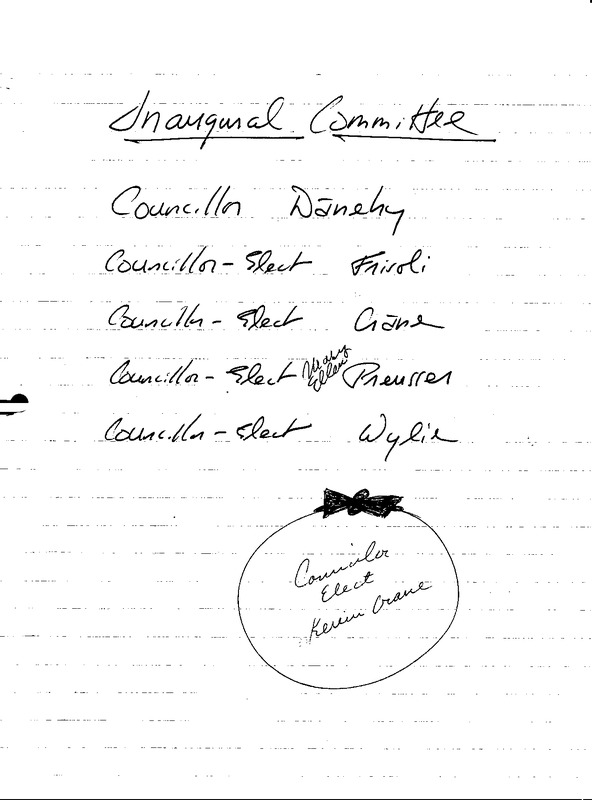 Inaugural Committee
Councillor Danehy
Councillor-Elect Frisoli
Councillor-Elect Crane
Councillor-Elect Mary Ellen Preusser
Councillor-Elect Wylie
Councilor
Elect
Kevin Crane